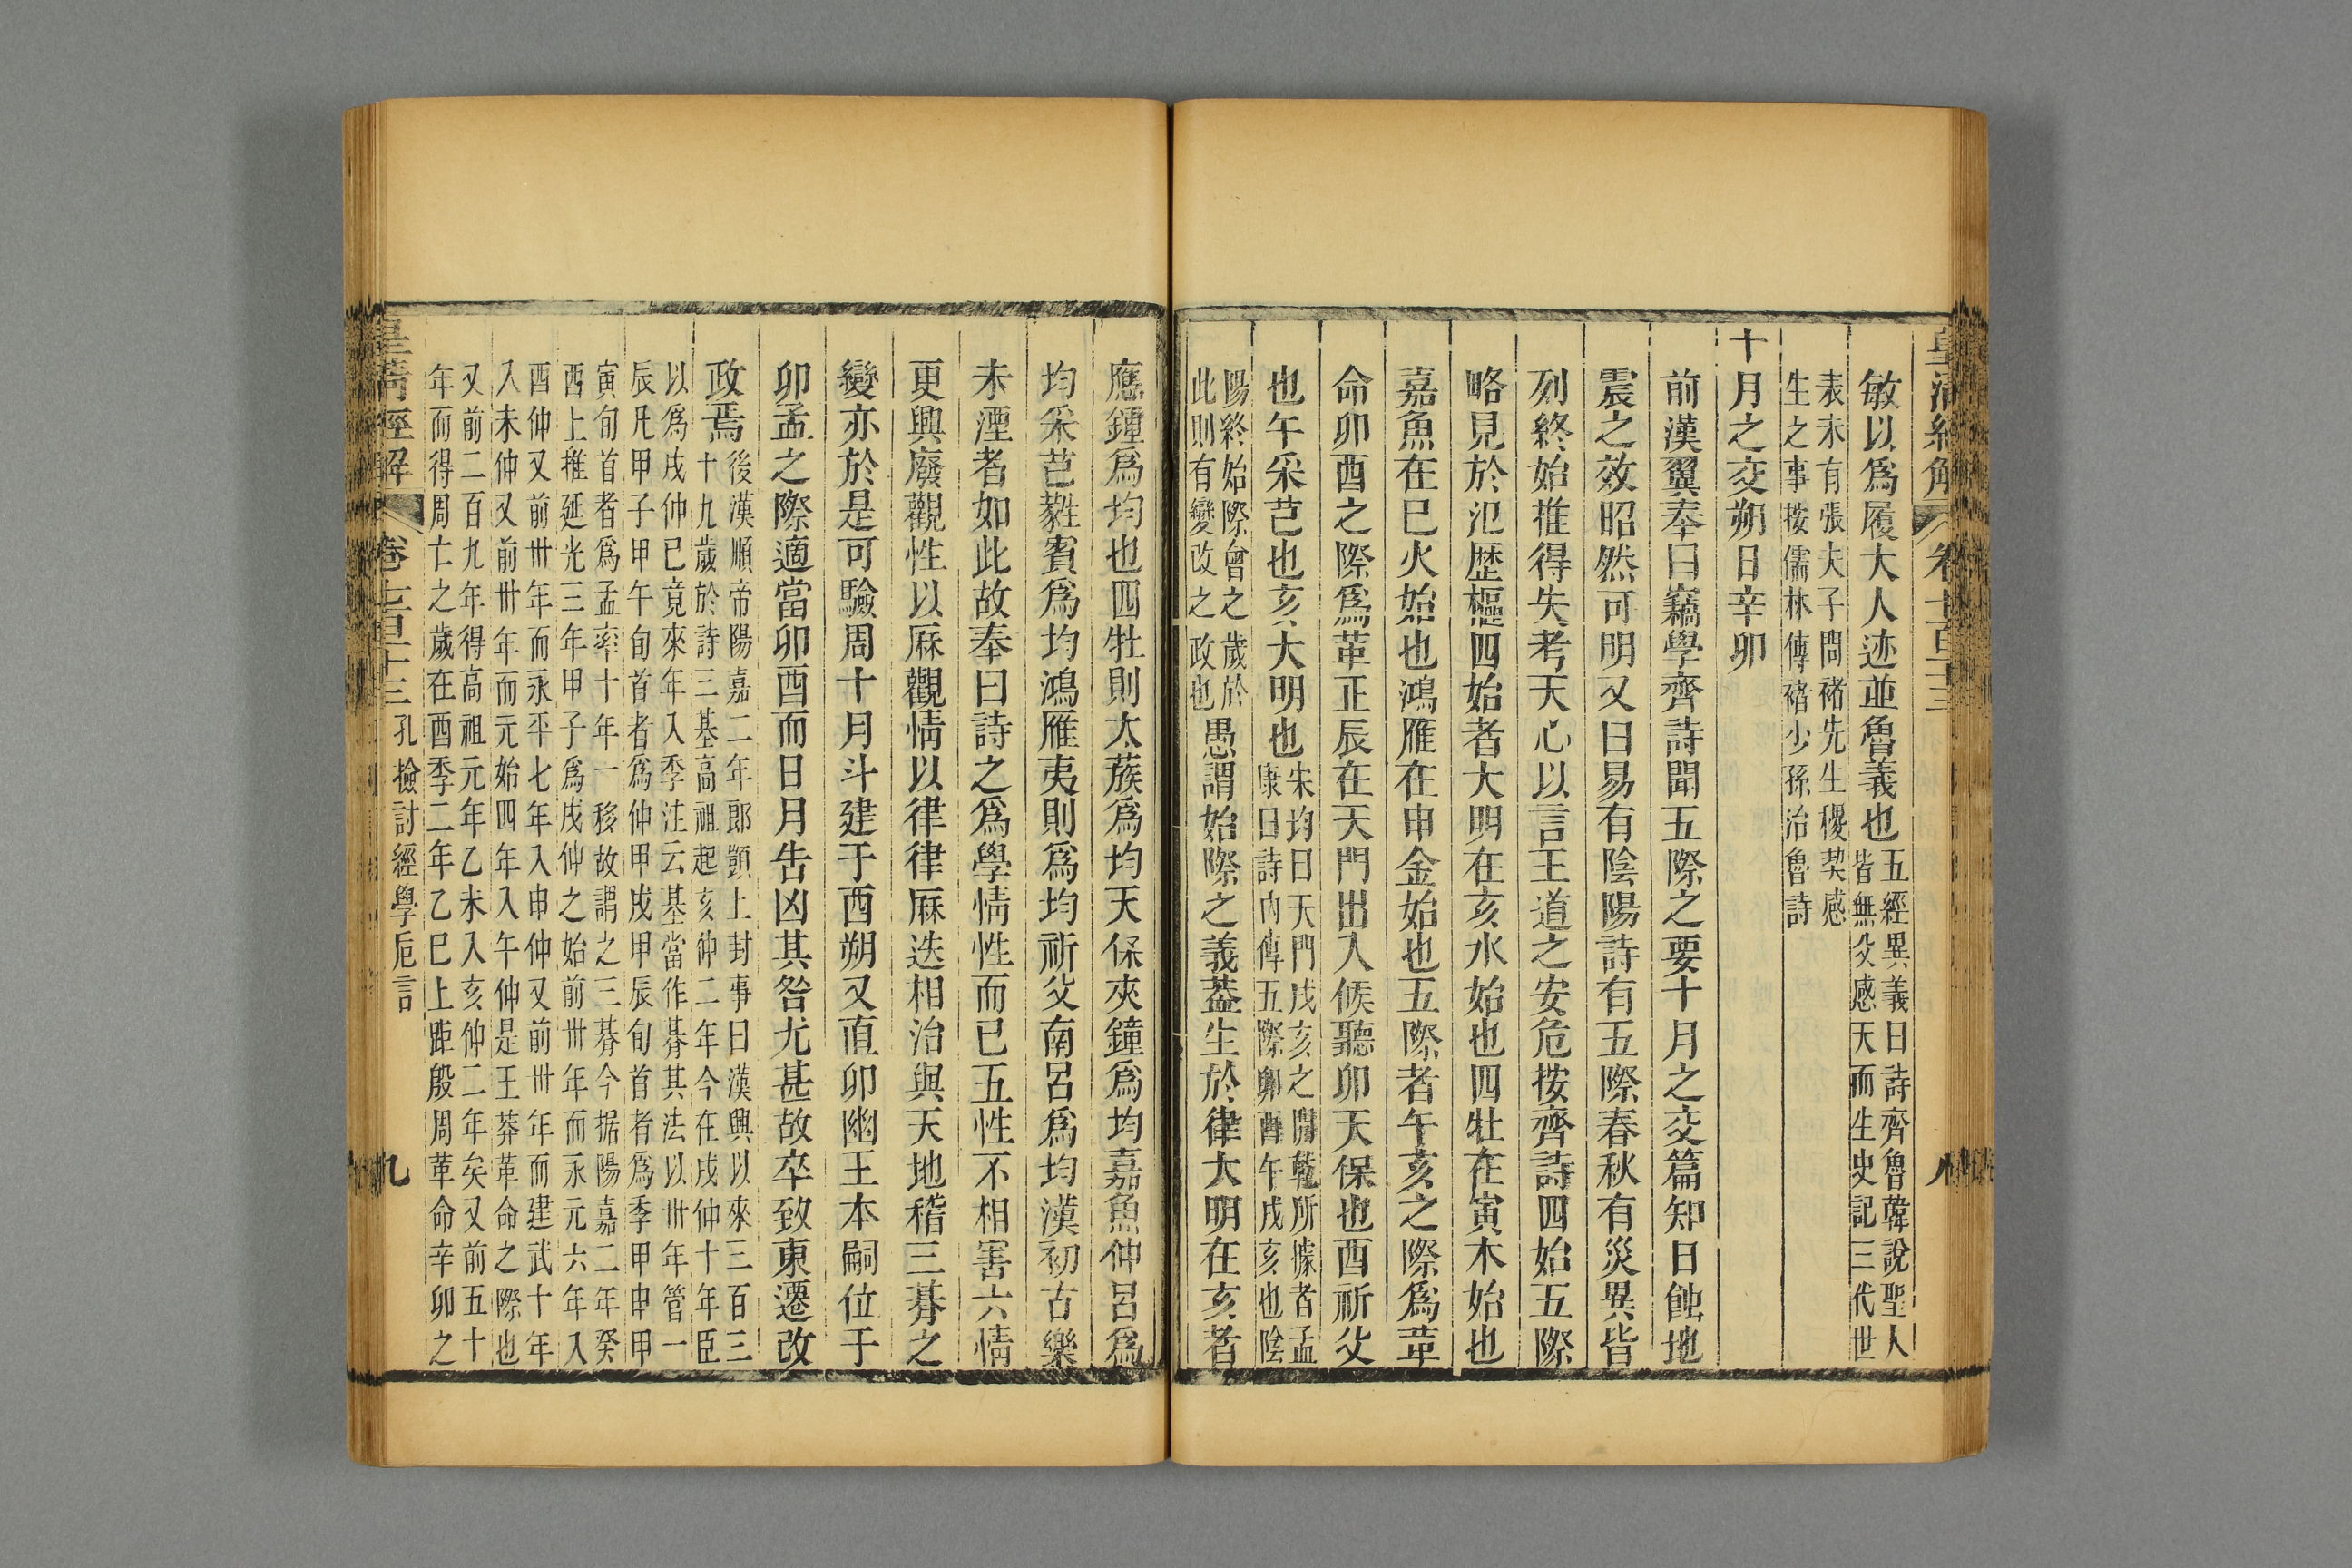 皇清經解
卷七百十三
八
敏以爲履大人迹並魯義也五經異義曰詩齊魯韓說聖人
皆無父感天而生史記三代世
表末有張夫子問褚先生稷契感
生之事按儒林傳褚少孫治魯詩
十月之交朔日辛卯
前漢翼奉曰竊學齊詩聞五際之要十月之交篇知日蝕地
震之效昭然可明又曰易有陰陽詩有五際春秋有災異皆
列終始推得失考天心以言王道之安危按齊詩四始五際
略見於氾歷樞四始者大明在亥水始也四牡在寅木始也
嘉魚在巳火始也鴻雁在申金始也五際者午亥之際爲革
命卯酉之際爲革正辰在天門出入候聽卯天保也酉祈父
也午采芑也亥大明也宋均曰天門戌亥之閒乾所據者孟
康曰詩內傳五際卯酉午戌亥也陰
陽終始際會之歲於
此則有變改之政也愚謂始際之義葢生於律大明在亥者
應鍾爲均也四牡則太蔟爲均天保夾鐘爲均嘉魚仲呂爲
均采芑蕤賓爲均鴻雁夷則爲均祈父南呂爲均漢初古樂
未湮者如此故奉曰詩之爲學情性而已五性不相害六情
更興廢觀性以厤觀情以律律厤迭相治與天地稽三朞之
變亦於是可驗周十月斗建于酉朔又直卯幽王本嗣位于
卯孟之際適當卯酉而日月告凶其咎尤甚故卒致東遷改
政焉後漢順帝陽嘉二年郎顗上封事曰漢興以來三百三
十九歲於詩三基高祖起亥仲二年今在戌仲十年臣
以爲戌仲已竟來年入季注云基當作朞其法以卅年管一
辰凡甲子甲午旬首者爲仲甲戌甲辰旬首者爲季甲申甲
寅旬首者爲孟率十年一移故謂之三朞今据陽嘉二年癸
酉上推延光三年甲子爲戌仲之始前卅年而永元六年入
酉仲又前卅年而永平七年入申仲又前卅年而建武十年
入未仲又前卅年而元始四年入午仲是王莽革命之際也
又前二百九年得高祖元年乙未入亥仲二年矣又前五十
年而得周亡之歲在酉季二年乙巳上距殷周革命辛卯之
皇清經解
卷七百十三
孔檢討經學卮言
九